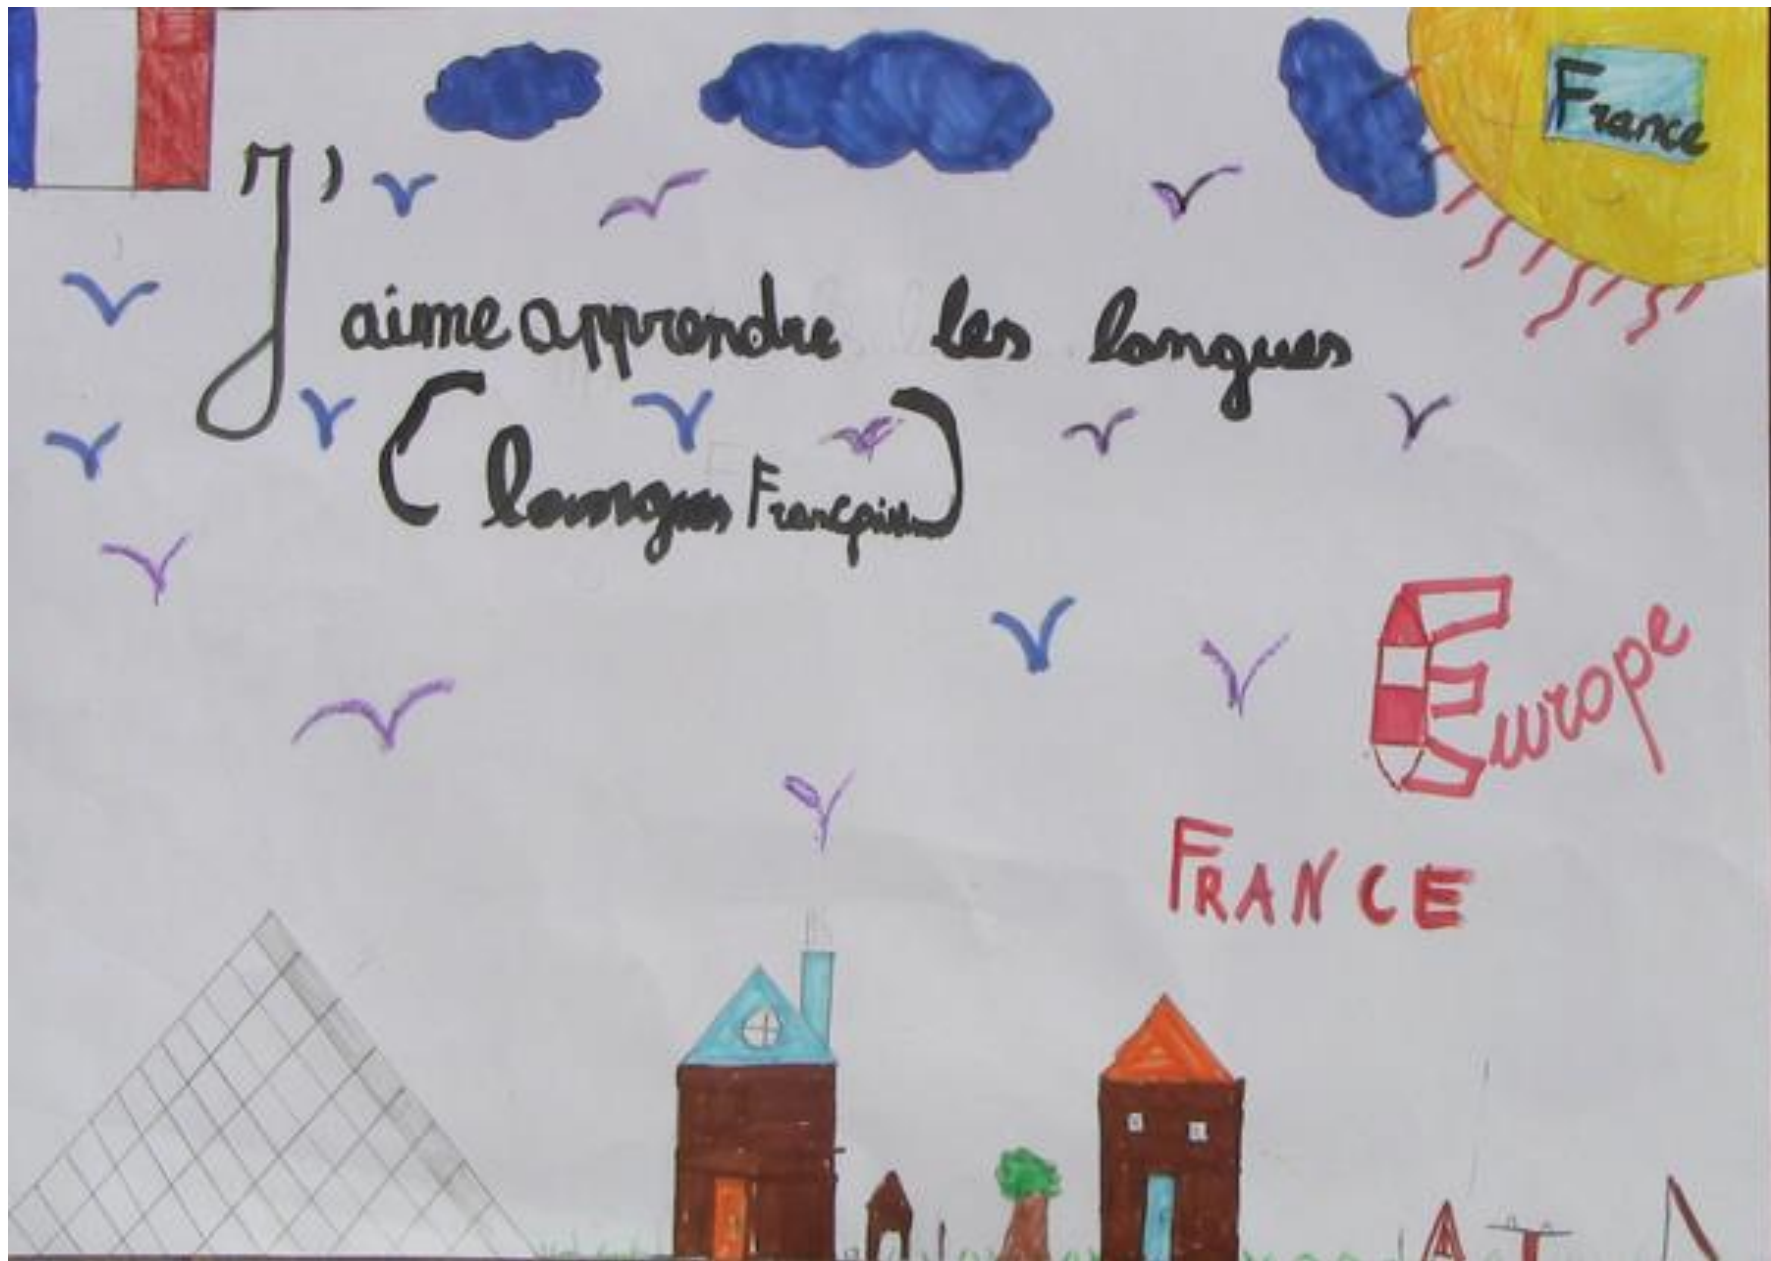 France
J'aime apprendre les langues
(langues Françaises)
Europe
FRANCE